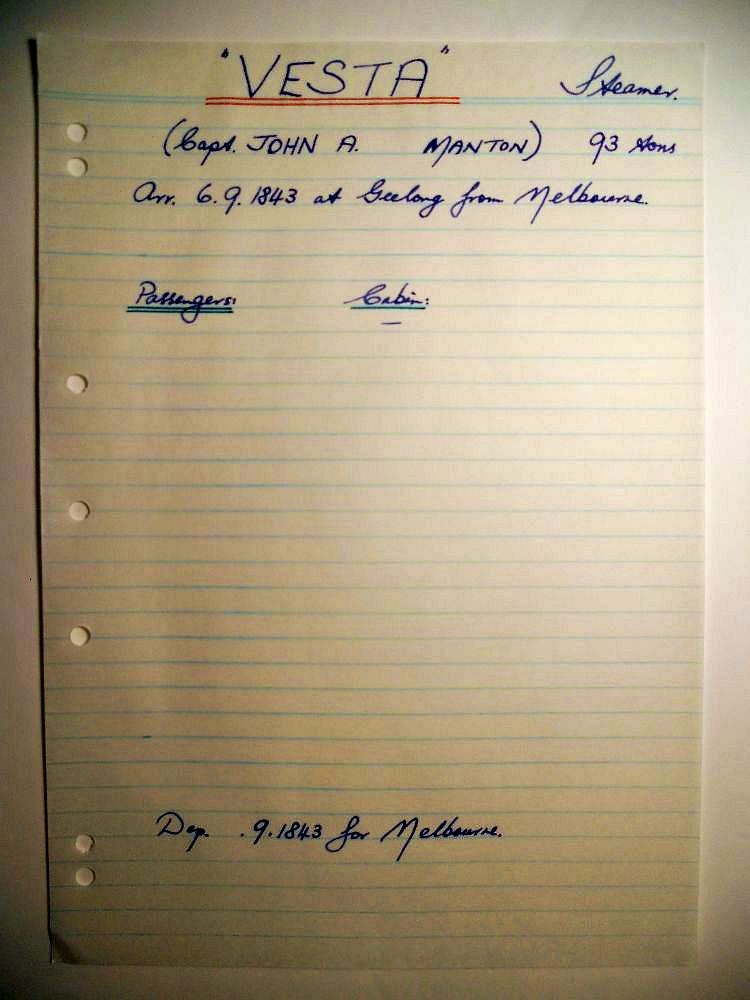 "VESTA" Steamer.
(Capt. JOHN A. MANTON) 93 tons
Arr. 6.9.1843 at Geelong from Melbourne.
Passengers: Cabin:
—
Dep. .9.1843 for Melbourne.